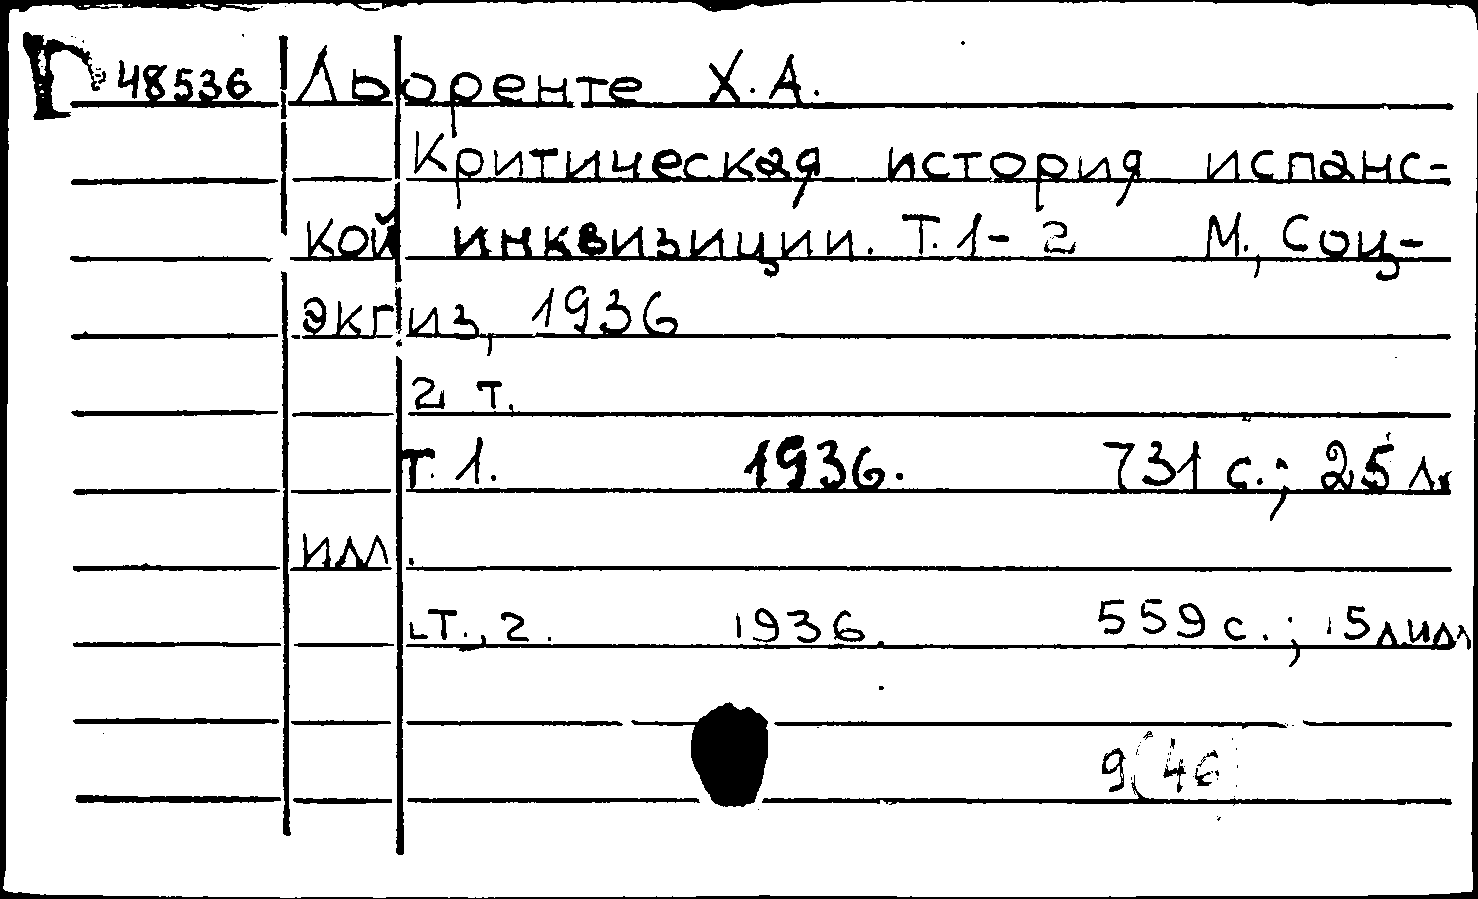 Г 48536 Льоренте Х.А.
Критическая история испанс-
кой инквизиции. Т.1-2 М., Соц-
экгиз, 1936
2 т.
Т.1. 1936. 731 с.; 25 л.
илл.
Т., 2. 1936. 559 с.; 15 л илл
9(46)